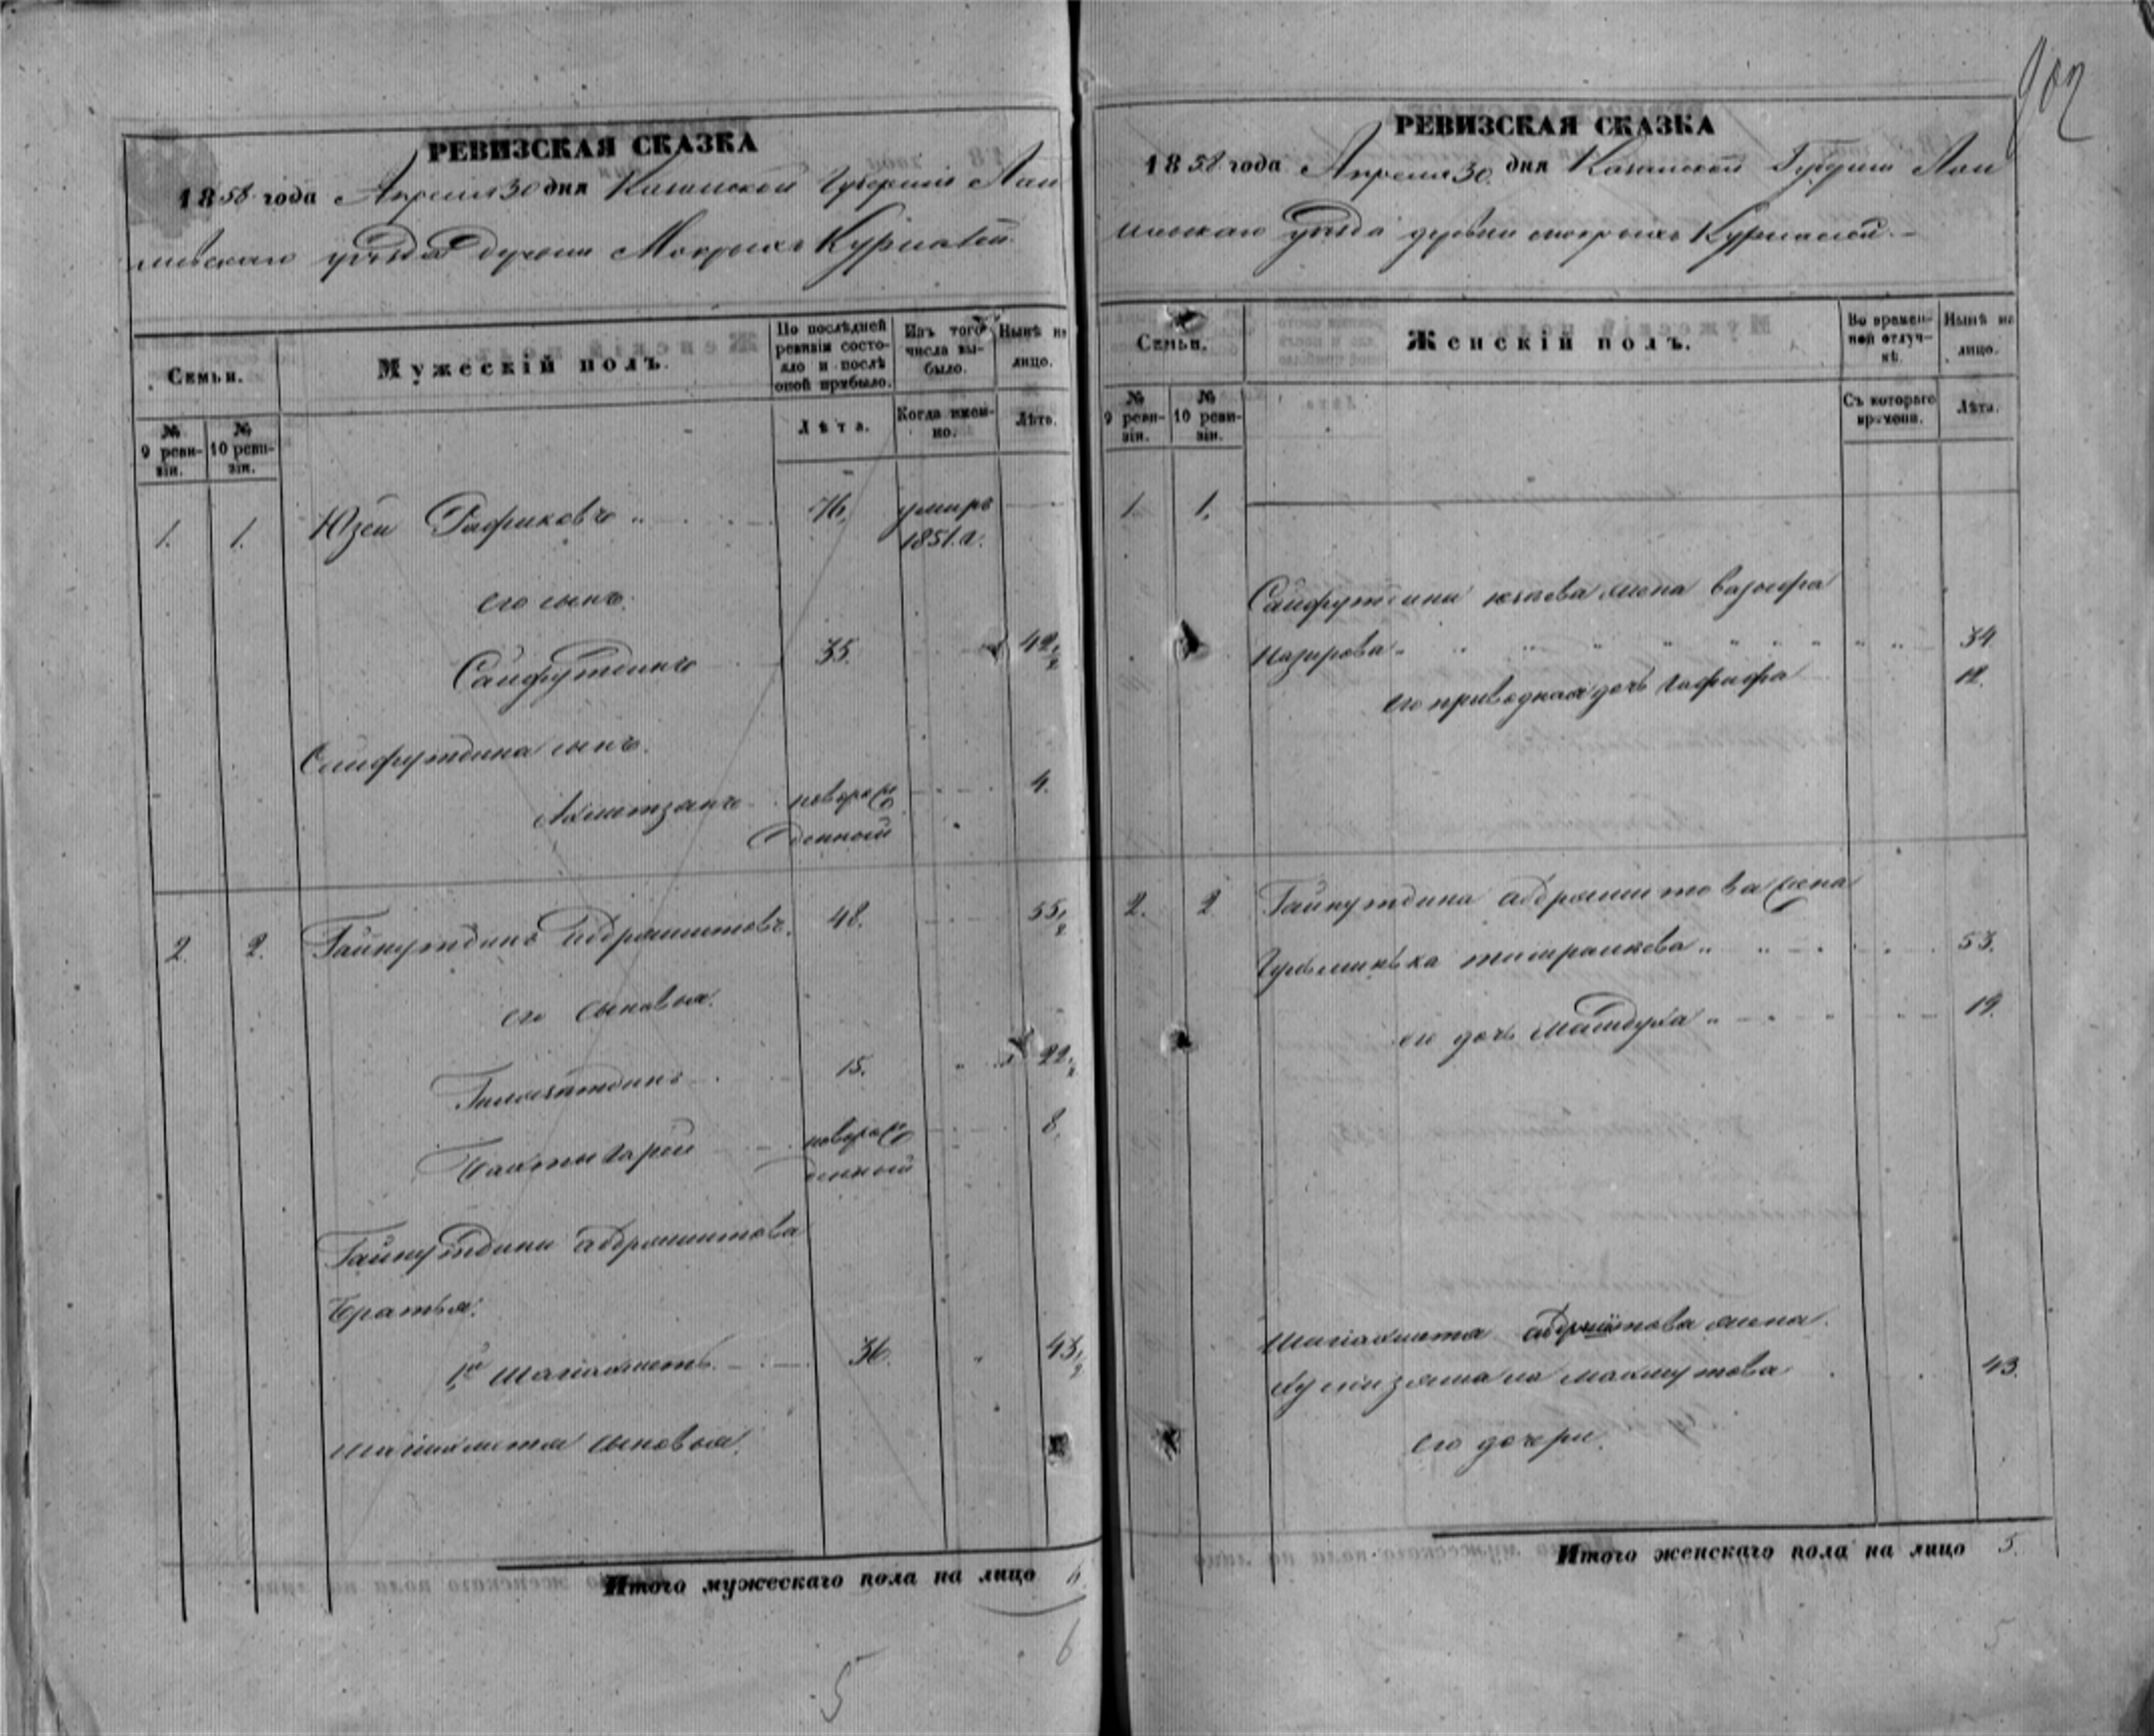 902
РЕВИЗСКАЯ СКАЗКА
1858 года Апреля 30 дня Казанской Губерніи Лаи
шевскаго уѣзда деревни Мокрыхъ Курналей.
Семьи.
Мужескій полъ.
По послѣдней ревизіи состояло и послѣ оной прибыло.
Изъ того числа выбыло.
Нынѣ на лицо.
№ 9 ревизіи.
№ 10 ревизіи.
Лѣта.
Когда именно.
Лѣта.
1. 1. Юзеи Рафиковъ 76. умиръ
1851.г.
его сынъ.
Сайфутдинъ 35. 42 1/2
Сайфутдина сынъ.
Ахметзянъ новорож 4.
денный
2. 2. Гайнутдинъ Абдряшитовъ. 48. 55 1/2
его сыновья.
15. 22 1/2
Бахтигарей новорож 8.
денный
Гайнутдина абдряшитова
братья.
1й Шагіахметъ. 36. 43 1/2
шагіахметя сыновья.
Итого мужескаго пола на лицо 6
6
5
РЕВИЗСКАЯ СКАЗКА
1858 года Апреля 30 дня Казанской Губерніи Лаи
шевскаго уѣзда деревни мокрыхъ Курналей.
Семьи.
Женскій полъ.
Во временной отлучкѣ.
Нынѣ на лицо.
№ 9 ревизіи.
№ 10 ревизіи.
Съ котораго времени.
Лѣта.
1. 1.
Сайфутдина юзеева жена
Назирова 34.
его приводная дочь Гафифа 12.
2. 2 Гайнутдина абдряшитова жена
53.
его дочь 19.
Шагіахмета абдряшитова жена.
махмутова 43.
его дочери.
Итого женскаго пола на лицо 5.
5